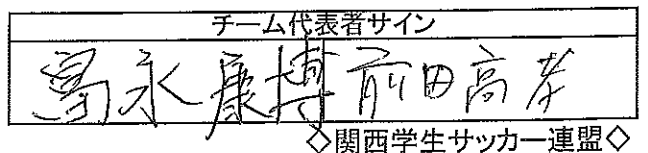 チーム代表者サイン
島永康博 前田高孝
◇関西学生サッカー連盟◇